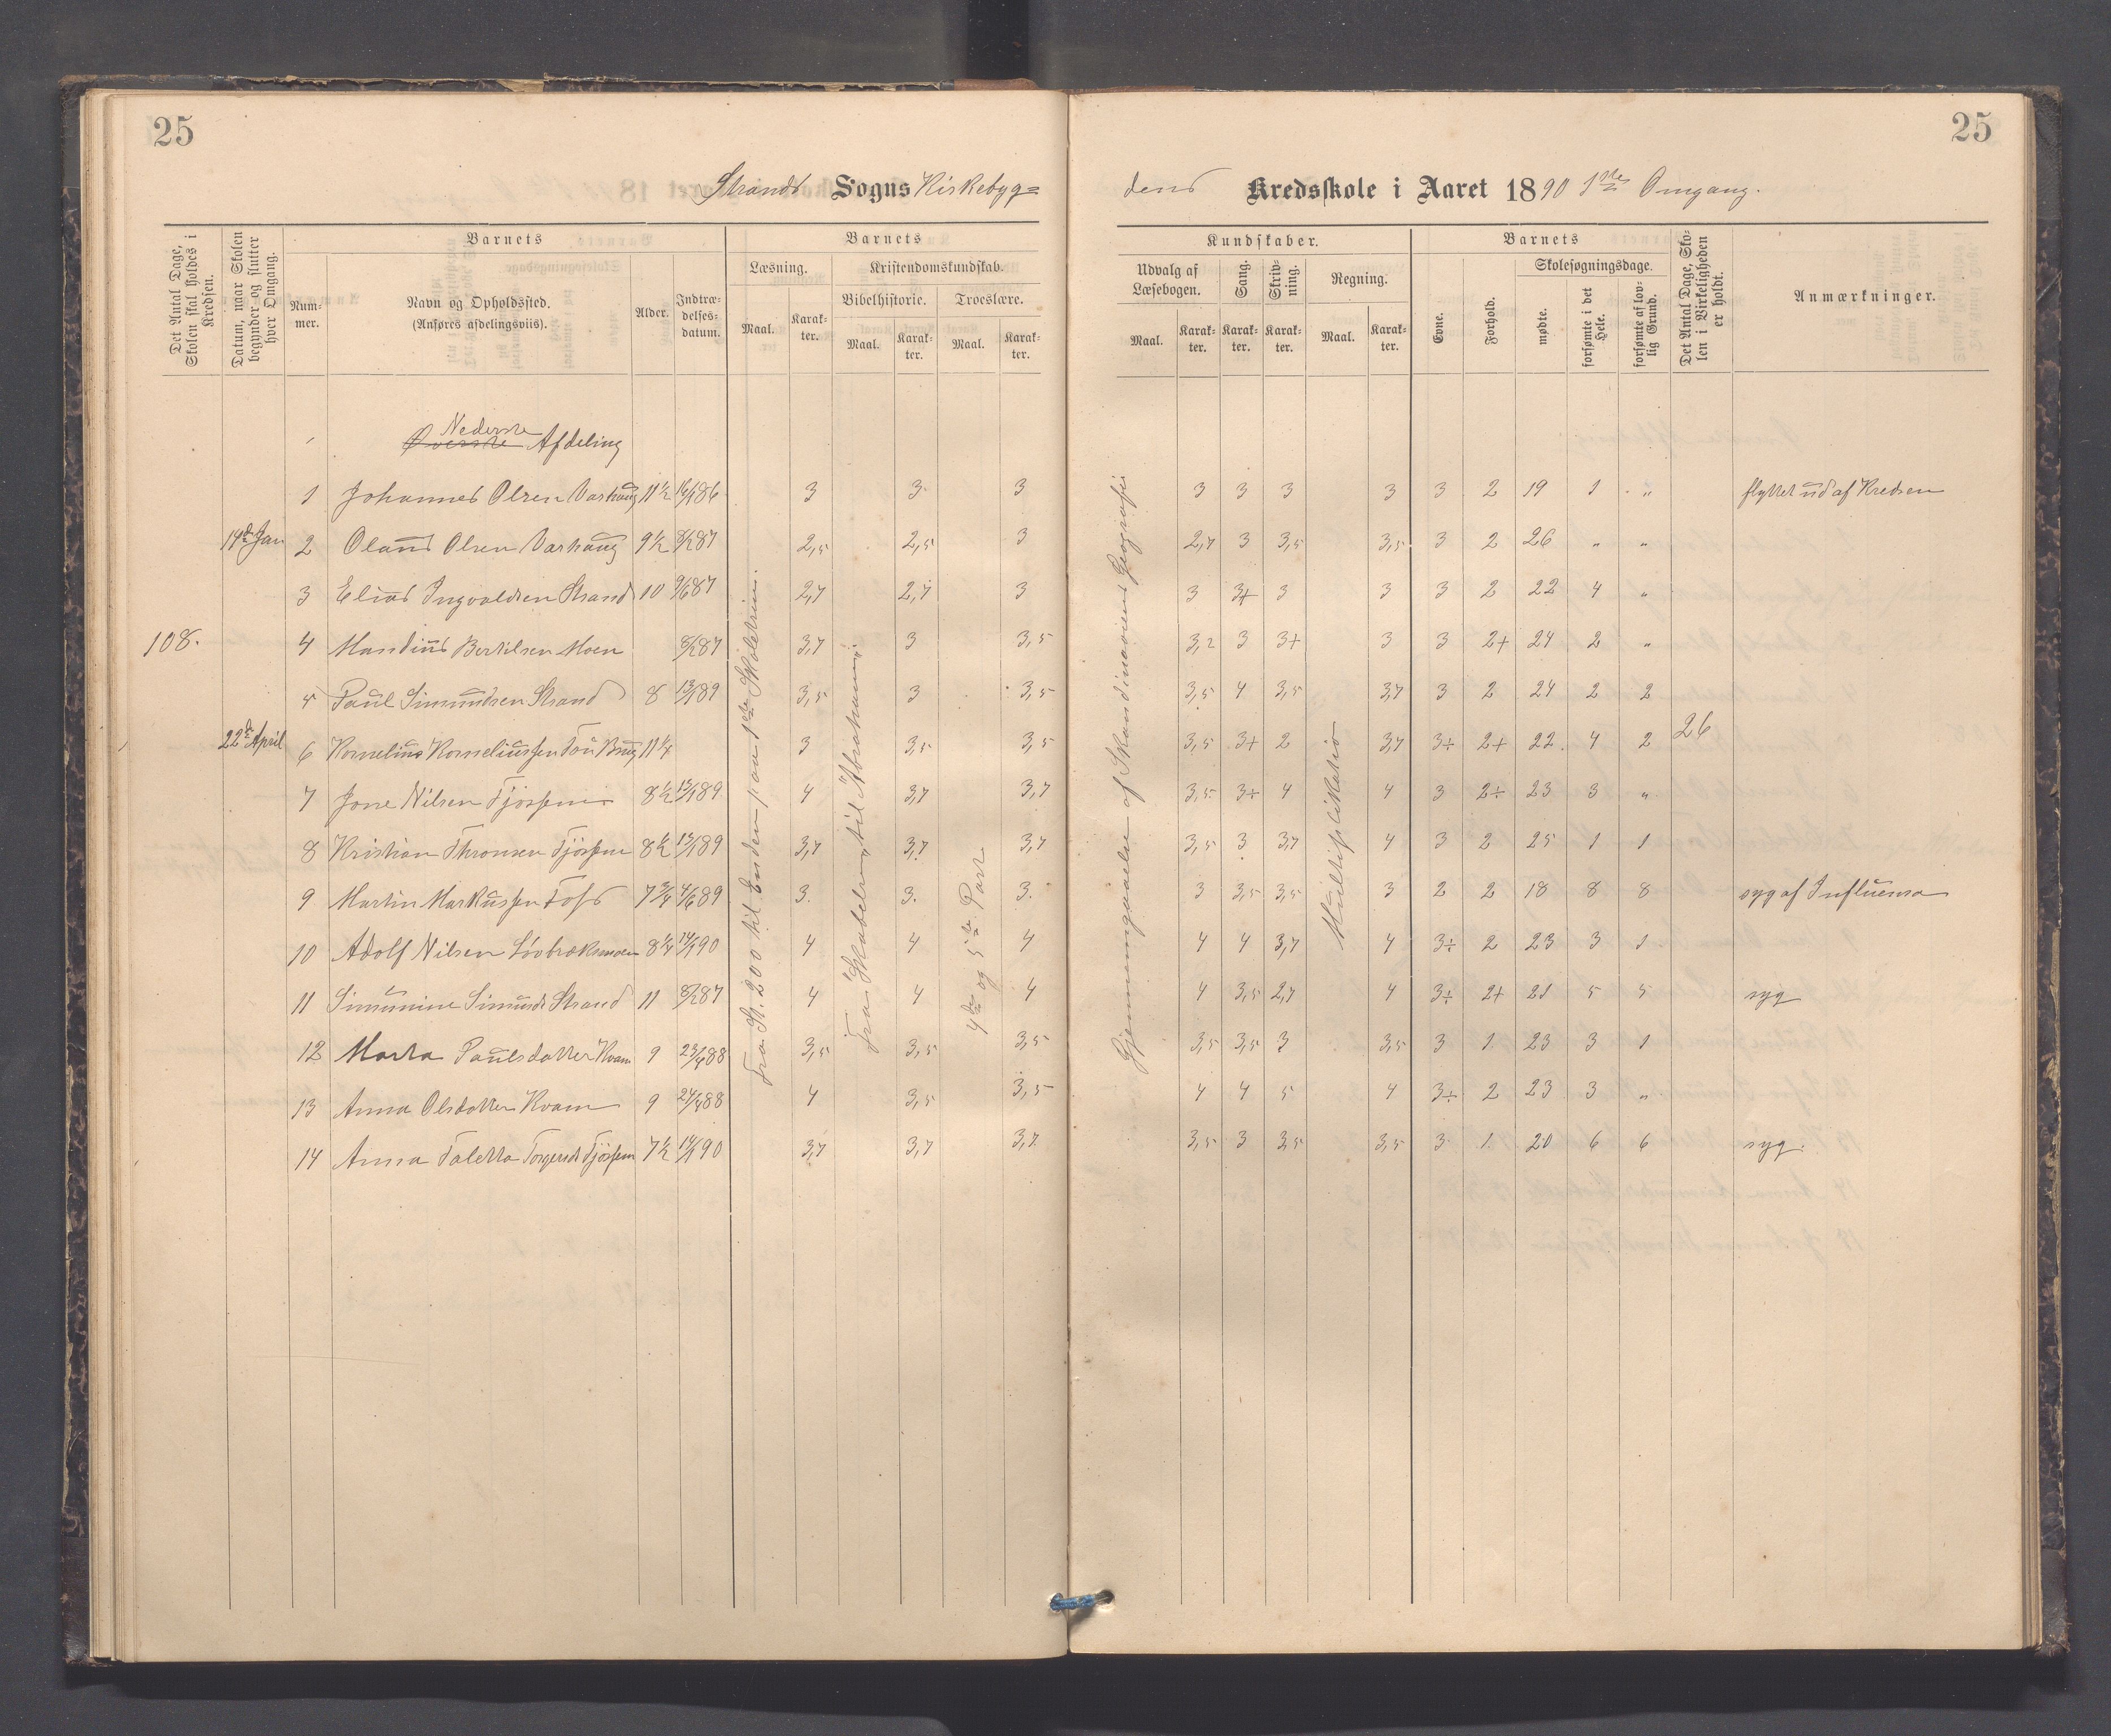 25
25
Strands Sogns Kirkebyg=
dens Kredsskole i Aaret 1890 1ste Omgang.
Det Antal Dage, Skolen skal holdes i Kredsen.
Datum, naar Skolen begynder og slutter hver Omgang.
Barnets
Num-mer.
Navn og Opholdssted.
(Anføres afdelingsviis).
Alder.
Indtræ-delses-datum.
Barnets
Læsning.
Kristendomskundskab.
Bibelhistorie.
Troeslære.
Maal.
Karak-ter.
Maal.
Karak-ter.
Maal.
Karak-ter.
Kundskaber.
Udvalg af Læsebogen.
Sang.
Skriv-ning.
Regning.
Maal.
Karak-ter.
Karak-ter.
Karak-ter.
Maal.
Karak-ter.
Barnets
Evne.
Forhold.
Skolesøgningsdage.
mødte.
forsømte i det Hele.
forsømte af lov-lig Grund.
Det Antal Dage, Sko-len i Virkeligheden er holdt.
Anmærkninger.
Nederste
Øverste Afdeling
1 Johannes Olsen Varhaug 11½ 16/186 3 3 3 3 3 3 3 3 2 19 1 " flyttet ud af Kredsen
14de Jan 2 Olaus Olsen Varhaug 9½ 8/287 2,5 2,5 3 2,7 3 3,5 3,5 3 2 26 " "
3 Elias Ingvaldsen Strand 10 9/687 2,7 2,7 3 3 3+ 3 3 3 2 22 4 "
108. 4 Mandius Bertilsen Moen 8/287 3,7 3 3,5 3,2 3 3+ 3 3 2+ 24 2 "
5 Paul Simundsen Strand 8 13/189 3,5 3 3,5 3,5 4 3,5 3,7 3 2 24 2 2
22de April 6 Kornelius Korneliussen Tau Brug 11¼ 3 3,5 3,5 3,5 3+ 2 3,7 3÷ 2+ 22 4 2 26
7 Jone Nilsen Tjøssem 8½ 13/189 4 3,7 3,7 3,5 3+ 4 4 3 2÷ 23 3 "
8 Kristian Thronsen Tjøssem 8½ 13/189 3,7 3,7 3,7 3,5 3 3,7 4 3 2 25 1 1
9 Martin Markussen Foss 7¾ 4/689 3 3 3 3 3,5 3,5 3 2 2 18 8 8 syg af Influensa
10 Adolf Nilsen Løvbræksmoen 8¼ 14/190 4 4 4 4 4 3,7 4 3÷ 2 23 3 1
11 Simumine Simunds Strand 11 8/287 4 4 4 4 3,5 2,7 4 3÷ 2+ 21 5 5 syg
12 Marta Paulsdatter Kvam 9 23/488 3,5 3,5 3,5 3,5 3,5 3 3,5 3 1 23 3 1
13 Anna Olsdatter Kvam 9 24/488 4 3,5 3,5 4 4 5 4 3÷ 2 23 3 "
14 Anna Taletta Torgersdt Tjøssem 7½ 14/190 3,7 3,7 3,7 3,5 3 3,5 3,5 3 1 20 6 6 syg.
Fra St. 200 til Enden paa 1ste Skoletrin.
Fra "Skabelsen" til "Abraham"
4de og 5te Part
Gjennemgaaelse af Skandinaviens Geografi
Multiplikatio